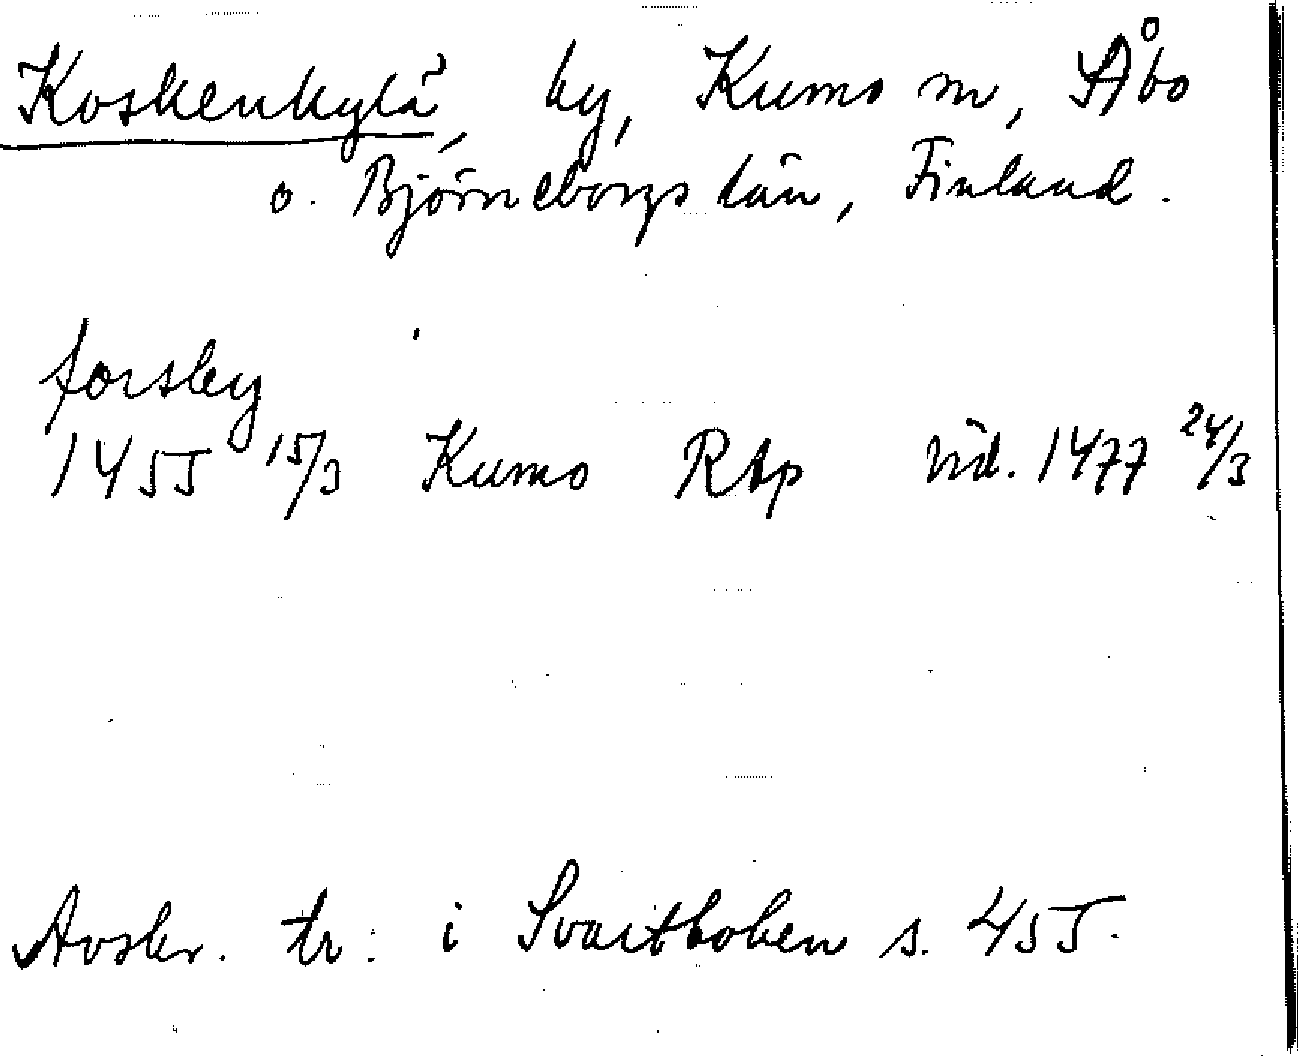 Koskenkylä, by, Kumo sn, Åbo
o. Björneborgs län, Finland.
forsby
1455 15/3 Kumo Rbp Vid. 1477 24/3
Avskr. tr. i Svartboken s. 455.